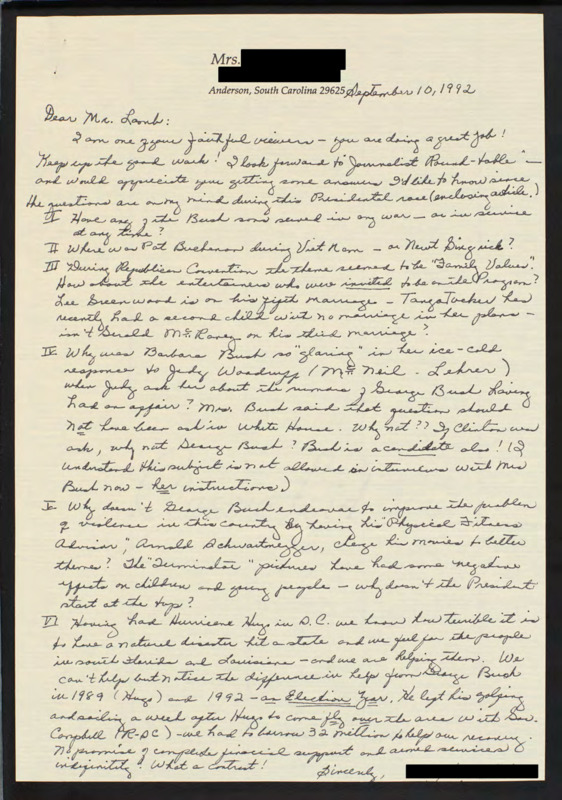 Mrs.
Anderson, South Carolina 29625 September 10, 1992
Dear Mr. Lamb:
I am one of your faithful viewers – you are doing a great job!
Keep up the good work! I look forward to "Journalist Round-table" –
and would appreciate you getting some answers I'd like to know since
the questions are on my mind during this Presidential race (enclosing article.)
I Have any of the Bush sons served in any war – or in service
at any time?
II Where was Pat Buchanan during Viet Nam – or Newt Gingrick?
III During Republican Convention the theme seemed to be "Family Values".
How about the entertainers who were invited to be on the Program?
Lee Greenwood is on his fifth marriage – Tanya Tucker has
recently had a second child with no marriage in her plans –
isn't Gerald McRaney on his third marriage?
IV Why was Barbara Bush so "glaring" in her ice-cold
response to Judy Woodruff (McNeil - Lehrer)
when Judy ask her about the rumors of George Bush having
had an affair? Mrs. Bush said that question should
not have been ask in White House. Why not?? If Clinton was
ask, why not George Bush? Bush is a candidate also! (I
understand this subject is not allowed in interviews with Mrs
Bush now – her instructions.)
V Why doesn't George Bush endeavor to improve the problem
of violence in this country by having his "Physical Fitness
Advisor", Arnold Schwartnegger, change his movies to better
themes? The "Terminator" pictures have had some negative
effects on children and young people – why doesn't the President
start at the top?
VI Having had Hurricane Hugo in S.C. we know how terrible it is
to have a natural disaster hit a state and we feel for the people
in south Florida and Louisiana – and we are helping them. We
can't help but notice the difference in help from George Bush
in 1989 (Hugo) and 1992 – an Election Year. He left his golfing
and sailing a week after Hugo to come fly over the area with Gov.
Campbell (R-SC) – we had to borrow 32 million to help our recovery.
No promise of complete financial support and armed services
What a contrast!
Sincerely,